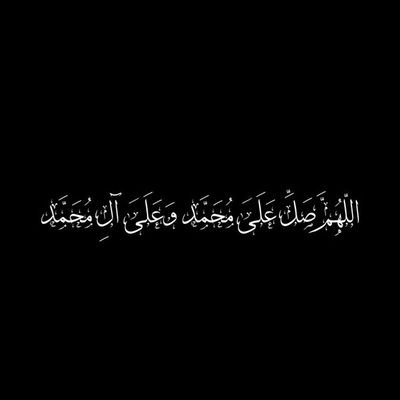 اللّهُمَّ صَلِّ عَلَىٰ مُحَمَّدٍ وَعَلَىٰ آلِ مُحَمَّدٍ